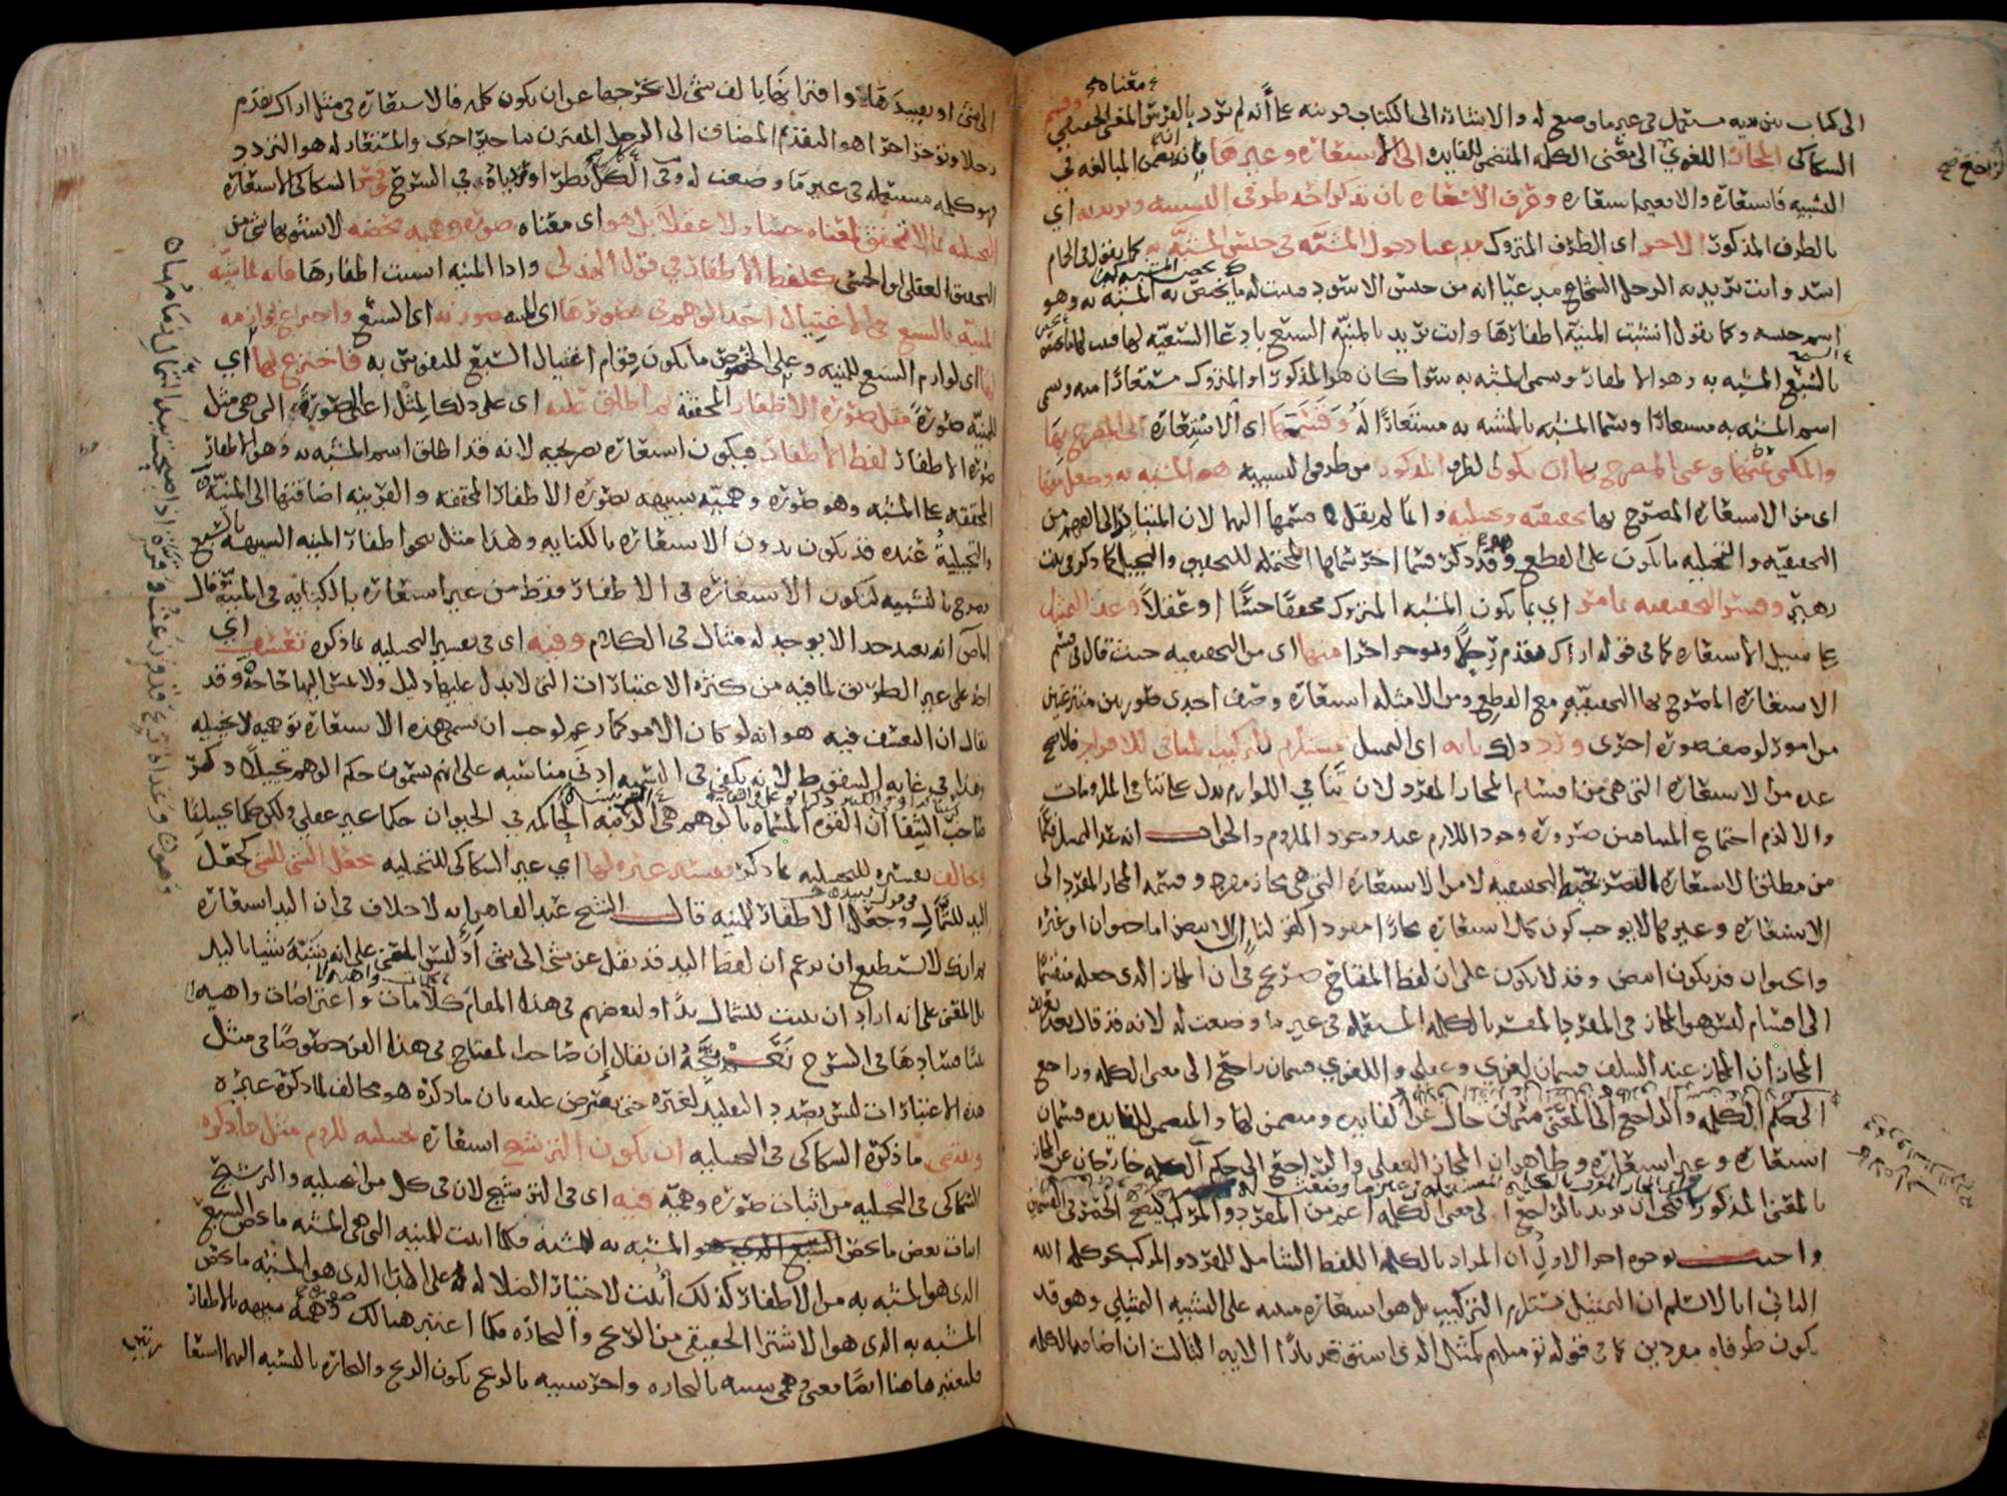 الى كتاب بين يديه مستعمل في غير ما وضع له والاشارة الى الكتاب قرينه على أنه لم يرد بالفرس المعنى الحقيقي
معناه
وقسم
السكاكى المجاز اللغوي الى معنى الكلمه المتضمن للفايده الى الاستعاره وغيرها بانه ان تضمن المبالغه في
التشبيه فاستعاره والا فغير استعاره وعرف الاستعاره بان تذكر احد طرفي التشبيه وتريد به اي
بالطرف المذكور الاخر اى الطرف المتروك مدعيا دخول المشبه في جنس المشبه به كما يقول في الحمام
اسد وانت تريد به الرجل الشجاع مدعيا انه من جنس الاسود فيثبت له ما يخص به المشبه به وهو
اسم جنسه وكما يقول انشبت المنية اظفارها وانت تريد بالمنيه السبع بادعا السبعيه لها فيثبت لها ما يخص
بالسبع المشبه به وهو الاظفار وسمى المشبه به سوا كان هو المذكور او المتروك مستعارا منه وسمى
اسم المشبه به مستعارا وسما المشبه بالمشبه به مستعارا له وقسمها اى الاستعارة الى المصرح بها
والمكنى عنها وعنى بالمصرح بها ان يكون الطرف المذكور من طرفي التشبيه هو المشبه به وجعل منها
اى من الاستعاره المصرح بها تحقيقيه وتخيليه وانما لم يقل قسمها اليها لان المتبادر الى الفهم من
التحقيقيه والتخيليه ما يكون على القطع وقد ذكر قسما اخر سماها المحتمله للتحقيق والتخييل كما ذكر في بيت
زهير وفسر التحقيقيه بما مر اي بما يكون المشبه المتروك محققا حسّا او عقلاً وعد التمثيل
على سبيل الاستعاره كما في قوله اراك تقدم رجلاً وتوخر اخرا منها اى من التحقيقيه حيث قال في قسم
الاستعاره المصرح بها التحقيقيه مع القطع ومن الامثله استعاره وصف احدى صورتين منتزعتين
من امور لوصف صوره اخرى ورد ذلك بانه اى التمثيل مستلزم للتركيب المنافي للافراد فلا يصح
عده من الاستعاره التي هي من اقسام المجاز المفرد لان تنافي اللوازم يدل على تنافي الملزومات
والا لزم اجتماع المتنافيين ضروره وجود اللازم عند وجود الملزوم والجواب انه عد التمثيل قسما
من مطلق الاستعاره التصريحيه التحقيقيه لا من الاستعاره التي هي مجاز مفرد وقسمه المجاز المفرد الى
الاستعاره وغيرها لا يوجب كون كل استعاره مجازا مفردا كقولنا الابيض اما حيوان او غيره
والحيوان قد يكون ابيض وقد لا يكون على ان لفظ المفتاح صريح في ان المجاز الذي جعله منقسما
الى اقسام ليس هو المجاز في المفرد المفسر بالكلمه المستعمله في غير ما وضعت له لانه قد قال بعد تعريف
المجاز ان المجاز عند السلف قسمان لغوي وعقلي واللغوي قسمان راجع الى معنى الكلمه وراجع
الى حكم الكلمه والراجع الى المعنى قسمان خال عن الفايده ومتضمن لها والمتضمن للفايده قسمان
استعاره وغير استعاره وظاهر ان المجاز العقلي والراجع الى حكم الكلمه خارجان عن المجاز
بالمعنى المذكور فيجب ان يريد بالراجع الى معنى الكلمه اعم من المفرد والمركب ليصح الحصر في القسمين
واجيب بوجوه اخر الاول ان المراد بالكلمه اللفظ الشامل للمفرد والمركب نحو كلمه الله
الثاني انا لا نسلم ان التمثيل يستلزم التركيب بل هو استعاره مبنيه على التشبيه التمثيلي وهو قد
يكون طرفاه مفردين كما في قوله تع مثلهم كمثل الذي استوقد نارًا الايه الثالث ان اضافه الكلمه
الى شئ او تقييدها واقترانها بالف شئ لا يخرجها عن ان يكون كلمه فالاستعاره في مثل اراك تقدم
رجلا وتوخر اخرا هو التقدم المضاف الى الرجل المقترن بتاخير اخرى والمستعار له هو التردد
فهو كلمه مستعمله في غير ما وضعت له وفي الكل نظر اوردناه في الشرح وفسر السكاكى الاستعارة
التخيليه بما لا تحقق لمعناه حسّا ولا عقلاً بل هو اى معناه صوره وهميه محضه لا يشوبها شى من
التحقيق العقلى او الحسى كلفظ الاظفار في قول الهذلى واذا المنيه انشبت اظفارها فانه لما شبه
المنيه بالسبع في الاغتيال اخذ الوهم في تصويرها اى المنيه بصورته اى السبع واختراع لوازمه
لها اى لوازم السبع للمنيه وعلى الخصوص ما يكون قوام اغتيال السبع للنفوس به فاخترع لها اي
للمنيه صورةً مثل صوره الاظفار المحققة ثم اطلق عليه اى على ذلك المثل اعنى الصورة التى هى مثل
صورة الاظفار لفظ الاظفار فيكون استعاره تصريحيه لانه قد اطلق اسم المشبه به وهو الاظفار
المحققه على المشبه وهو صوره وهميّه شبيهه بصورة الاظفار المحققه والقرينه اضافتها الى المنيّة
والتخيلية عنده قد يكون بدون الاستعاره بالكنايه ولهذا مثل بنحو اظفار المنيه الشبيهه بالسبع
فصرح بالتشبيه لتكون الاستعاره فى الاظفار فقط من غير استعاره بالكنايه في المنيّة قال
المص انه بعيد جدا لا يوجد له مثال في الكلام وفيه اى في تفسير التخيليه بما ذكره تعسّف اي
اخذ على غير الطريق لما فيه من كثره الاعتبارات التي لا يدل عليها دليل ولا تمس اليها حاجه وقد
يقال ان التعسف فيه هو انه لو كان الامر كما زعم لوجب ان يسمى هذه الاستعاره توهميه لا تخيليه
وهذا في غايه السقوط لانه يكفي في التسميه ادنى مناسبه على انهم يسمون حكم الوهم تخييلاً ذكر
صاحب الشفا ان القوه المسماه بالوهم هي الرئيسه الحاكمه في الحيوان حكما غير عقلي ولكن حكما تخييليًا
ويخالف تفسيره للتخيليه بما ذكره تفسير غيره لها اي غير السكاكى للتخيليه بجعل الشئ للشئ كجعل
اليد للشمال وجعل الاظفار للمنيه قال الشيخ عبد القاهر انه لا خلاف في ان اليد استعاره
ثم انك لا تستطيع ان تزعم ان لفظ اليد قد نقل عن شى الى شى اذ ليس المعنى على انه شبّه شيئا باليد
بل المعنى على انه اراد ان يثبت للشمال يدًا ولبعضهم في هذا المقام كلامات واعتراضات واهيه
بينا فسادها فى الشرح نعم يتجه ان يقال إن صاحب المفتاح في هذا الفن خصوصًا في مثل
هذه الاعتبارات ليس بصدد التقليد لغيره حتى يعترض عليه بان ما ذكره هو مخالف لما ذكره غيره
ويقتضى ما ذكره السكاكى في التخيليه ان يكون الترشيح استعاره تخيليه للزوم مثل ما ذكره
السكاكى في التخيليه من اثبات صوره وهميّة فيه اى في الترشيح لان في كل من التخيليه والترشيح
اثبات بعض ما يخص المشبه به للمشبه فكما اثبت للمنيه التي هي المشبه ما يخص السبع
الذى هو المشبه به من الاظفار كذلك أثبت لاختيار الضلاله على الهدى الذى هو المشبه ما يخص
المشبه به الذى هو الاشترا الحقيقي من الربح والتجاره فكما اعتبر هنالك صوره وهميه شبيهه بالاظفار
فليعتبر هاهنا ايضا معنى وهمى شبيه بالتجاره واخر شبيه بالربح يكون الربح والتجاره بالنسبه اليهما استعا